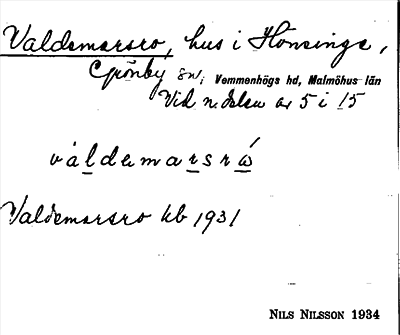 Valdemarsro, hus i Hönsinge,
Grönby sn, Vemmenhögs hd, Malmöhus län
Vid n. delen av 5 i 15
váldemarsrω´
Valdemarsro kb 1931
NILS NILSSON 1934